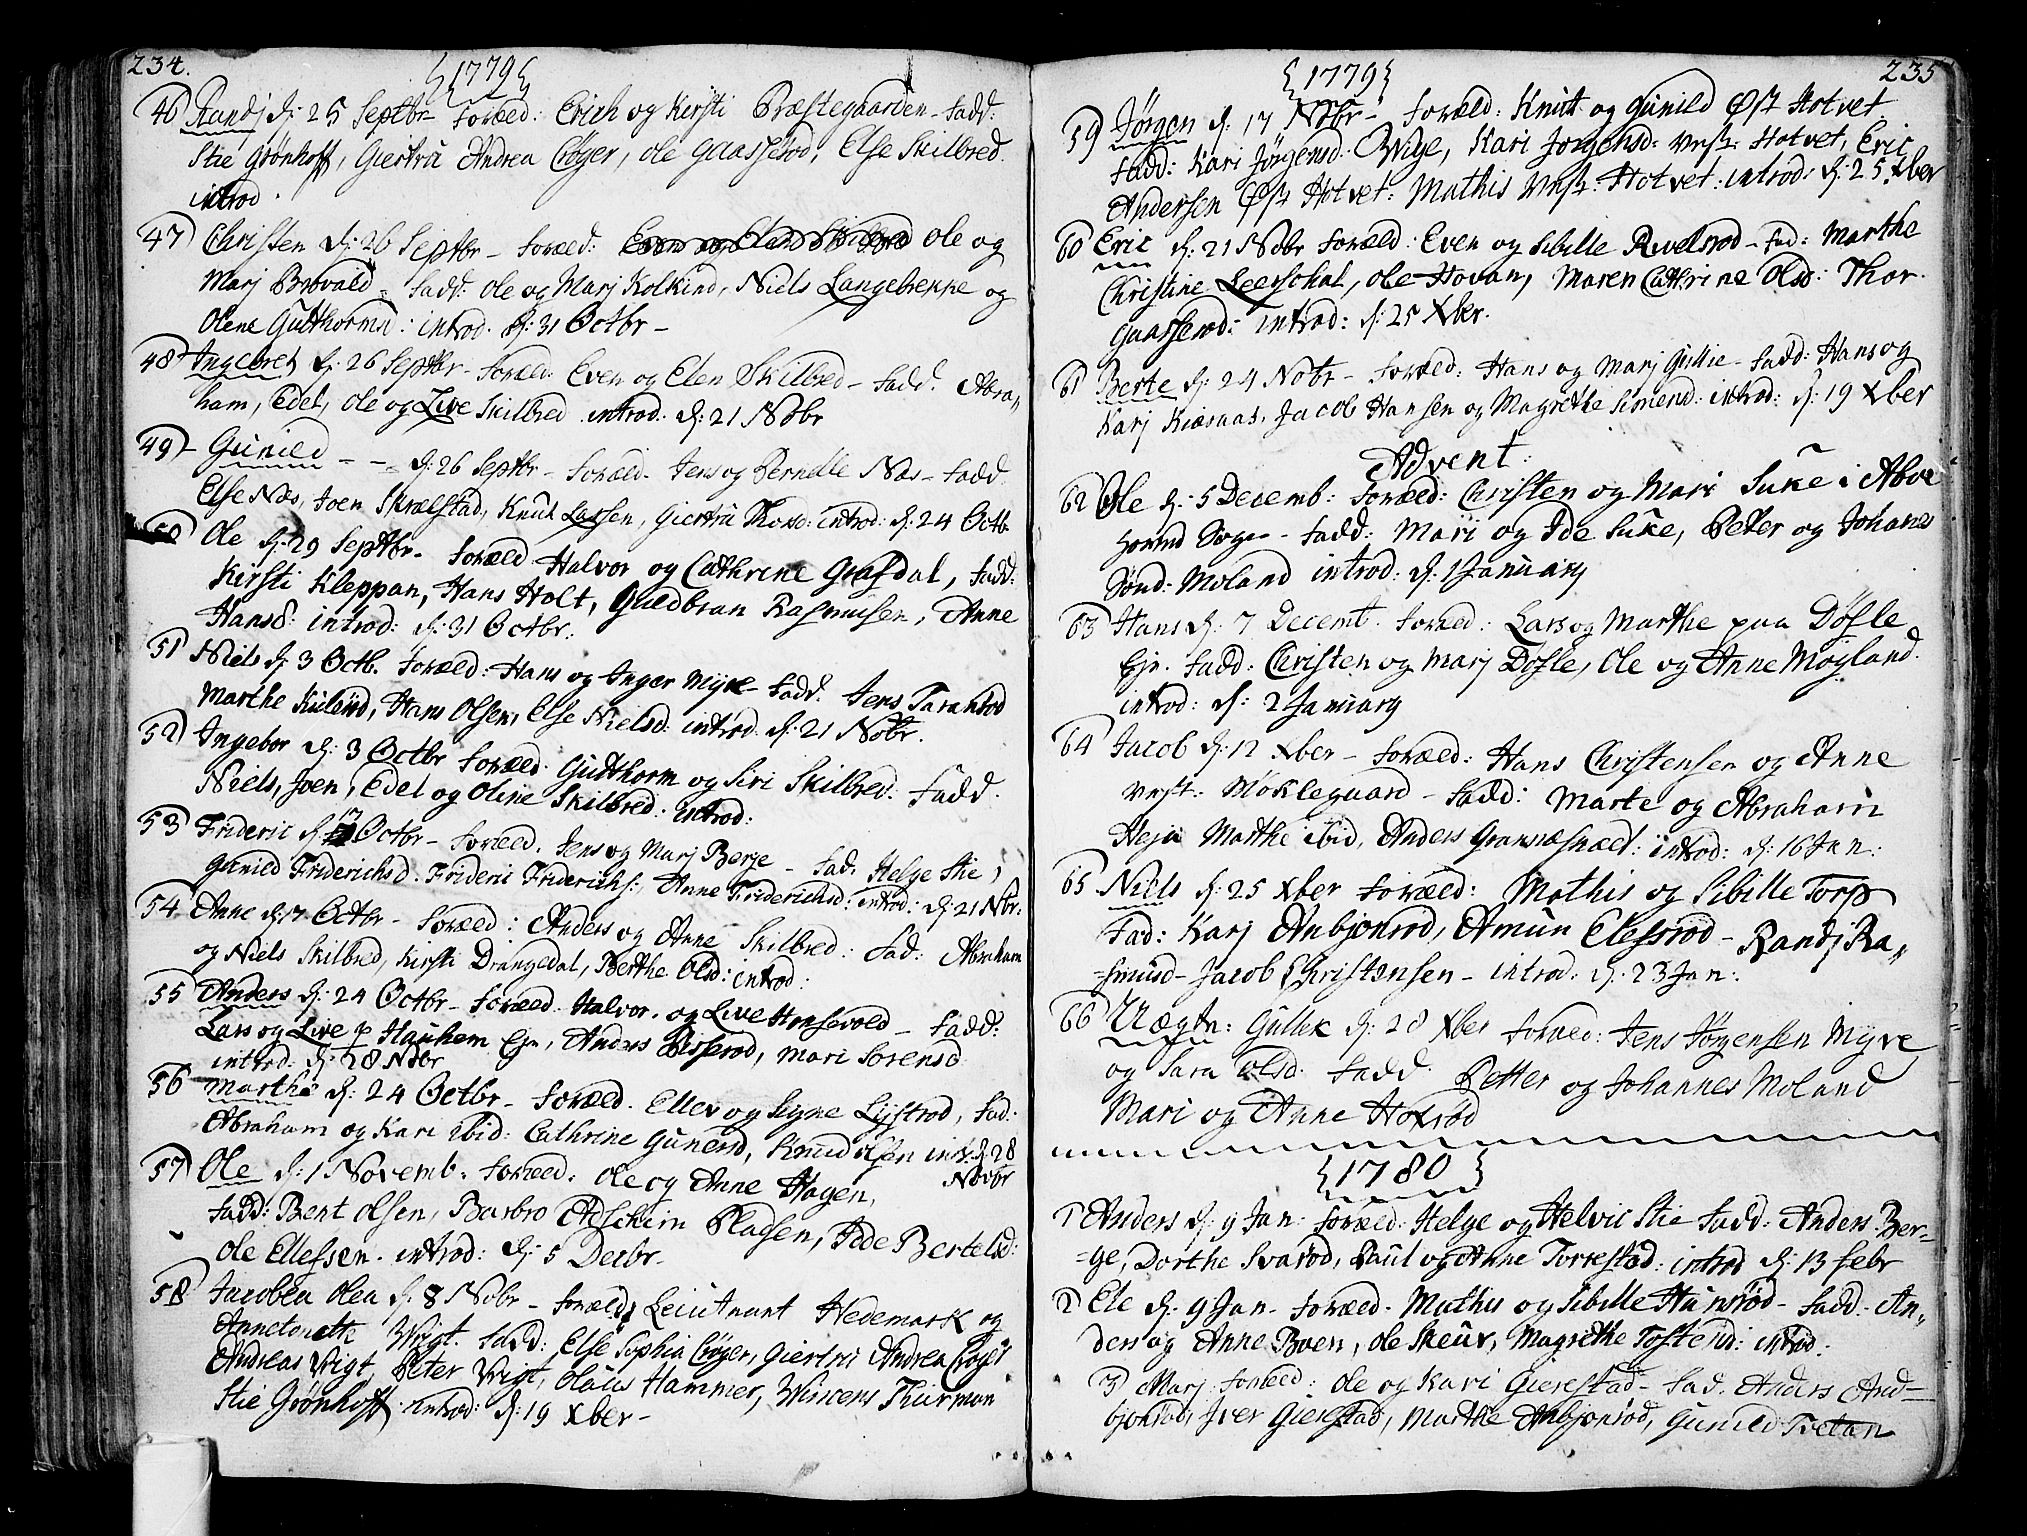 234.
{1779}
46 Randj d: 25 Septbr Foræld: Erich og Kirsti Præstegaarden – Fadd:
Stie Grønhoff, Giertru Andrea Crøger, Ole Gaasserød, Else Skilbred.
introd.
47 Christen d: 26 Septbr – Foræld: Ole og
Marj Brovald – Fadd: Ole og Marj Kolkind, Niels Langetreppe og
Olene Gutthormsd: introd. d: 31 Octbr –
48 Ingebret d: 26 Septbr – Foræld: Even og Elen Skilbred – Fadd. Abra„
ham, Edel, Ole og Live Skilbred introd. d: 21 Nobr
49 Gunild – – d: 26 Septbr – Foræld. Jens og Pernelle Næs – Fadd.
Else Næs, Joen Skrælstad, Knut Lassen, Giertru introd: d: 24 Octb.
50 Ole d: 29 Septbr. Foræld Halvor og Cathrine Grafdal, Fadd:
Kirsti Kleppan, Hans Holt, Guldbran Rasmusen, Anne
Hansd: introd: d: 31 Octbr.
51 Niels d: 3 Octb. Foræld: Hans og Inger Myre – Fadd. Jens Taranrød
Marthe Hans Olsen, Else Nielsd: introd. d: 21 Nobr.
52 Ingebor d: 3 Octbr Foræld. Gutthorm og Siri Skilbred. Fadd.
Niels, Joen, Edel og Oline Skilbred. introd:
53 Frideric d: 17 Octbr – Foræld. Jens og Marj Berge – Fad. Helge Stie,
Gunild Friderichsd. Frideric Friderichs:, Anne Friderichsd: introd: d: 21 Nbr.
54 Anne d: 17 Octbr – Foræld: Anders og Anne Skilbred: Fad: Abraham
og Niels Skilbred, Kirsti Drangedal, Berthe Olsd: introd:
55 Anders d: 24 Octbr – Foræld. Halvor og Live Honsevold – Fadd:
Lars og Live p Haukem Eje, Anders Bisserød, Mari Sorensd
introd: d: 28 Nobr
56 Marthe d: 24 Octbr – Foræld. Ellev og Signe Lystrod, Fad:
Abraham og Kari ibid: Cathrine Gunersd, Knud Olsen int: d: 28
Novbr
57 Ole d: 1 Novemb. Foræld: Ole og Anne Hagen,
Fadd: Bert Olsen, Barbro Pladsen, Ide Bertelsd:
Ole Ellefsen. introd: d: 5 Decbr.
58 Jacobea Olea d: 8 Nobr – Foræld: Leiutnant Hedemark og
Annetoreth Wigt. Fadd: Else Sophia Crøger, Giertru Andrea Crøger
Andreas Wigt, Peter Wigt, Olaus Hammer, Wincens Thurman
Stie Grønhoff. introd: d: 19 Xber –
235
{1779}
59 Jørgen d: 17 Nobr – Foræld: Knutt og Gunild Øst Hotvet
Fadd: Kari Jørgensd. Wige, Kari Jorgensd: Vest: Hotvet, Eric
Andersen Øst Hotvet: Mathis Vest: Hotvet: introd: d: 25 Xber
60 Eric d: 21 Nobr Foræld: Even og Sibille Rivelsrod – Fad: Marthe
Christine Leerschal, Ole Hovan, Maren Cathrine Olsd: Thor
Gaasserød: introd: d: 25 Xber.
61 Berte d: 24 Nobr – Foræld: Hans og Marj Gullie – Fadd: Hans og
Karj Kiæsaas, Jacob Hansen og Magrethe Simensd: introd: d: 19 Xber
Advent:
62 Ole d: 5 Decemb: Foræld: Christen og Mari Suke i
Sogn – Fadd: Marj og Ide Suke, Peter og Johanes
Sønd: Moland introd: d: 1 January
63 Hans d: 7 Decemb. Foræld: Lars og Marthe paa Døfle
Eje. Fadd: Christen og Marj Døfle, Ole og Anne Møgland.
introd: d: 2 January
64 Jacob d: 12 Xber – Foræld: Hans Christensen og Anne
Vest: Møklegaard – Fadd: Marte og Abraham
Heja Marthe ibid, Anders introd: d: 16 Jan:
65 Niels d: 25 Xber Foræld: Mathis og Sibille Torp
Fad: Karj Anbjonrod, Amun Elefsrod – Randj Ra„
smusd – Jacob Christensen – introd: d: 23 Jan:
66 Uægte: Gullek d: 28 Xber Foræld: Jens Jørgensen Myre
og Sara Olsd. Fadd. Petter og Johannes Moland
Mari og Anne Hoxrød
{1780}
1 Anders d: 9 Jan: Foræld: Helge og Helvic Stie Fadd: Anders Ber-
-ge, Dorthe Svarød, Paul og Anne Torrestad: introd d: 13 Febr
2 Ele d: 9 Jan – Foræld. Mathis og Sibille Hunsrød – Fadd. An„
ders og Anne Boen, Ole Skeur, Magrethe Tostensd: introd:
3 Marj Foræld: Ole og Kari Gierestad – Fad. Anders And-
bjonrod, Iver Gierestad, Marthe Anbjonrod, Gunild Tvetan